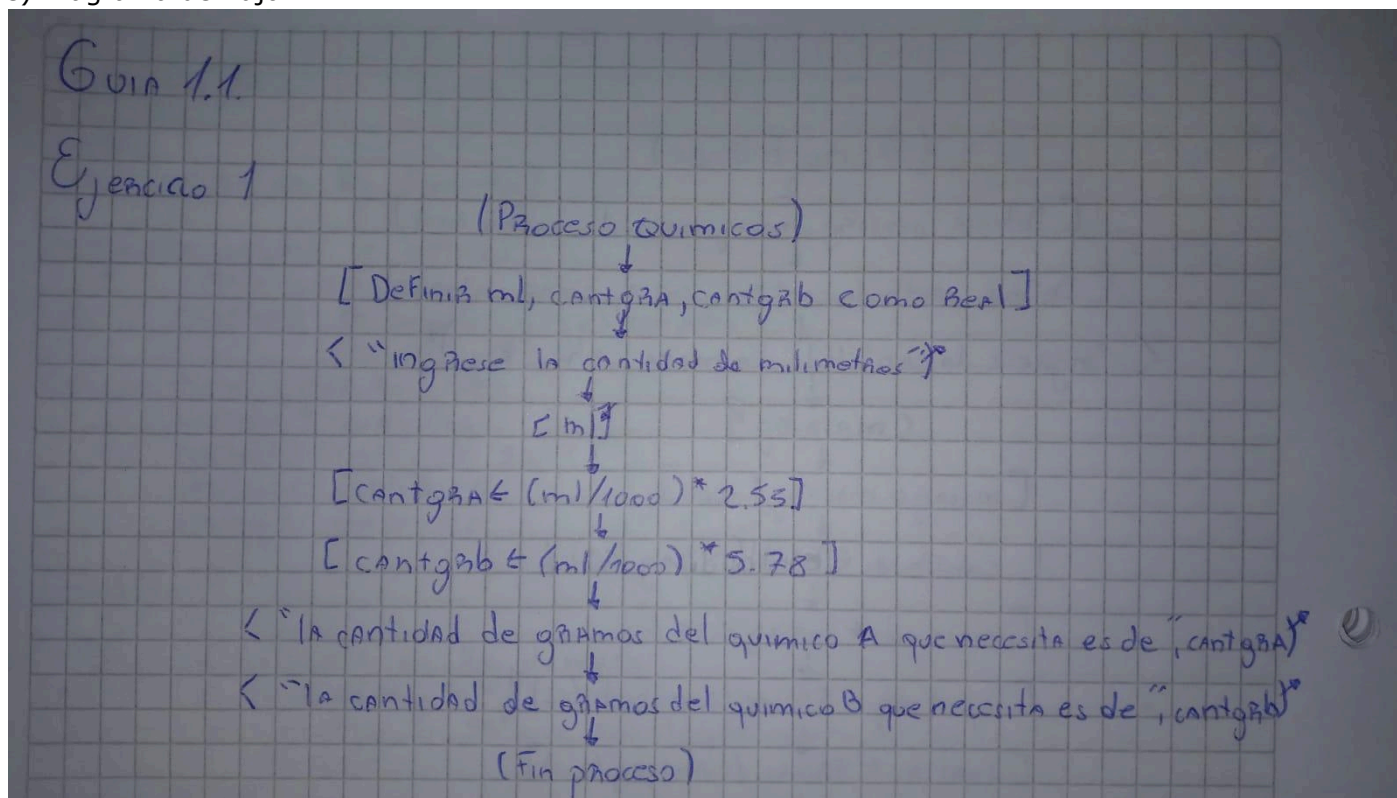 Guia 1.1.
Ejercicio 1
(Proceso Quimicos)
[Definir ml, cantgrA, cantgrb como Real]
< "ingrese la cantidad de milimetros"
[ml]
[cantgrA ← (ml/1000) * 2.55]
[cantgrb ← (ml/1000) * 5.78]
< "la cantidad de gramos del quimico A que necesita es de", cantgrA
< "la cantidad de gramos del quimico B que necesita es de", cantgrb
(Fin proceso)